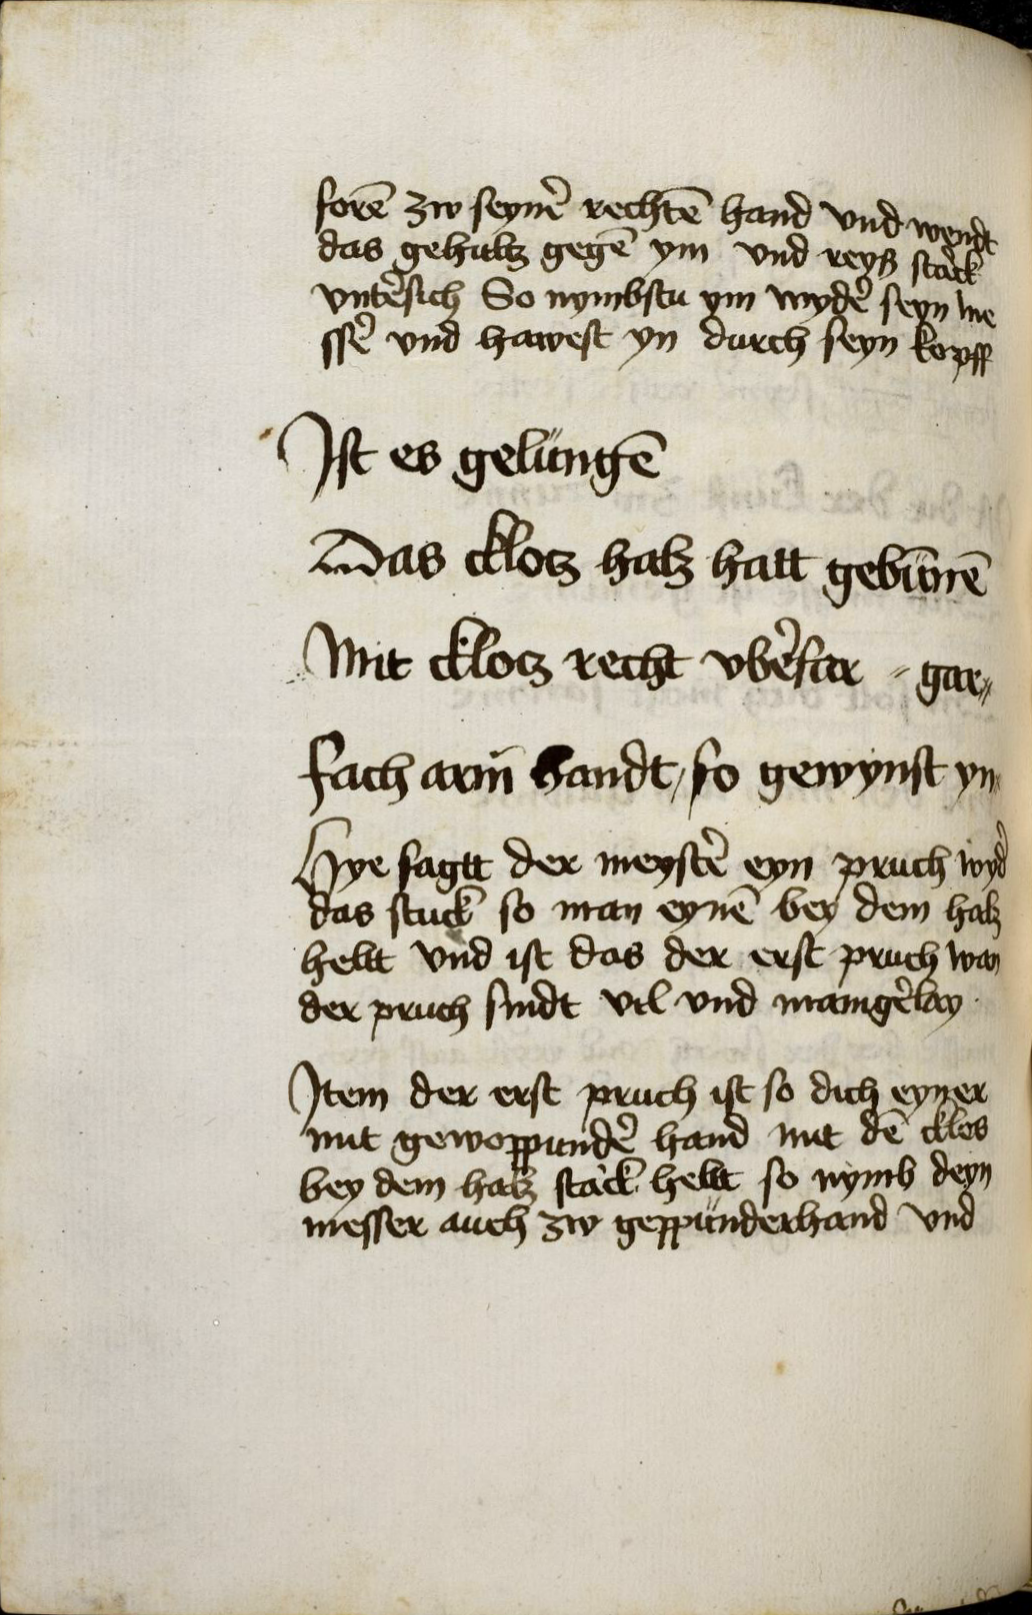 forē zw seynẽ rechtē hand vnd wendt
das gehultz gegē ym vnd reyß starck
vntẽsich So nymbstu ym wydẽ seyn me
ssẽ vnd hawest yn durch seyn kopff
Ist es gelüngē
Das cklotz halß hatt gebūnē
Mit cklotz recht vbẽfar gar
fach arm̄ handt / so gewynst yn
Hye sagtt der meystẽ eyn pruch wyd̃
das stuck so man eynē bey dem halß
heltt vnd ist das der erst pruch wan
der pruch sindt vil vnd manigẽlay
Item der erst pruch ist so dich eyner
mit gewoppundẽ hand mit dē cklos
bey dem halß starck heltt so nymb deyn
messer auch zw geppünderhand vnd